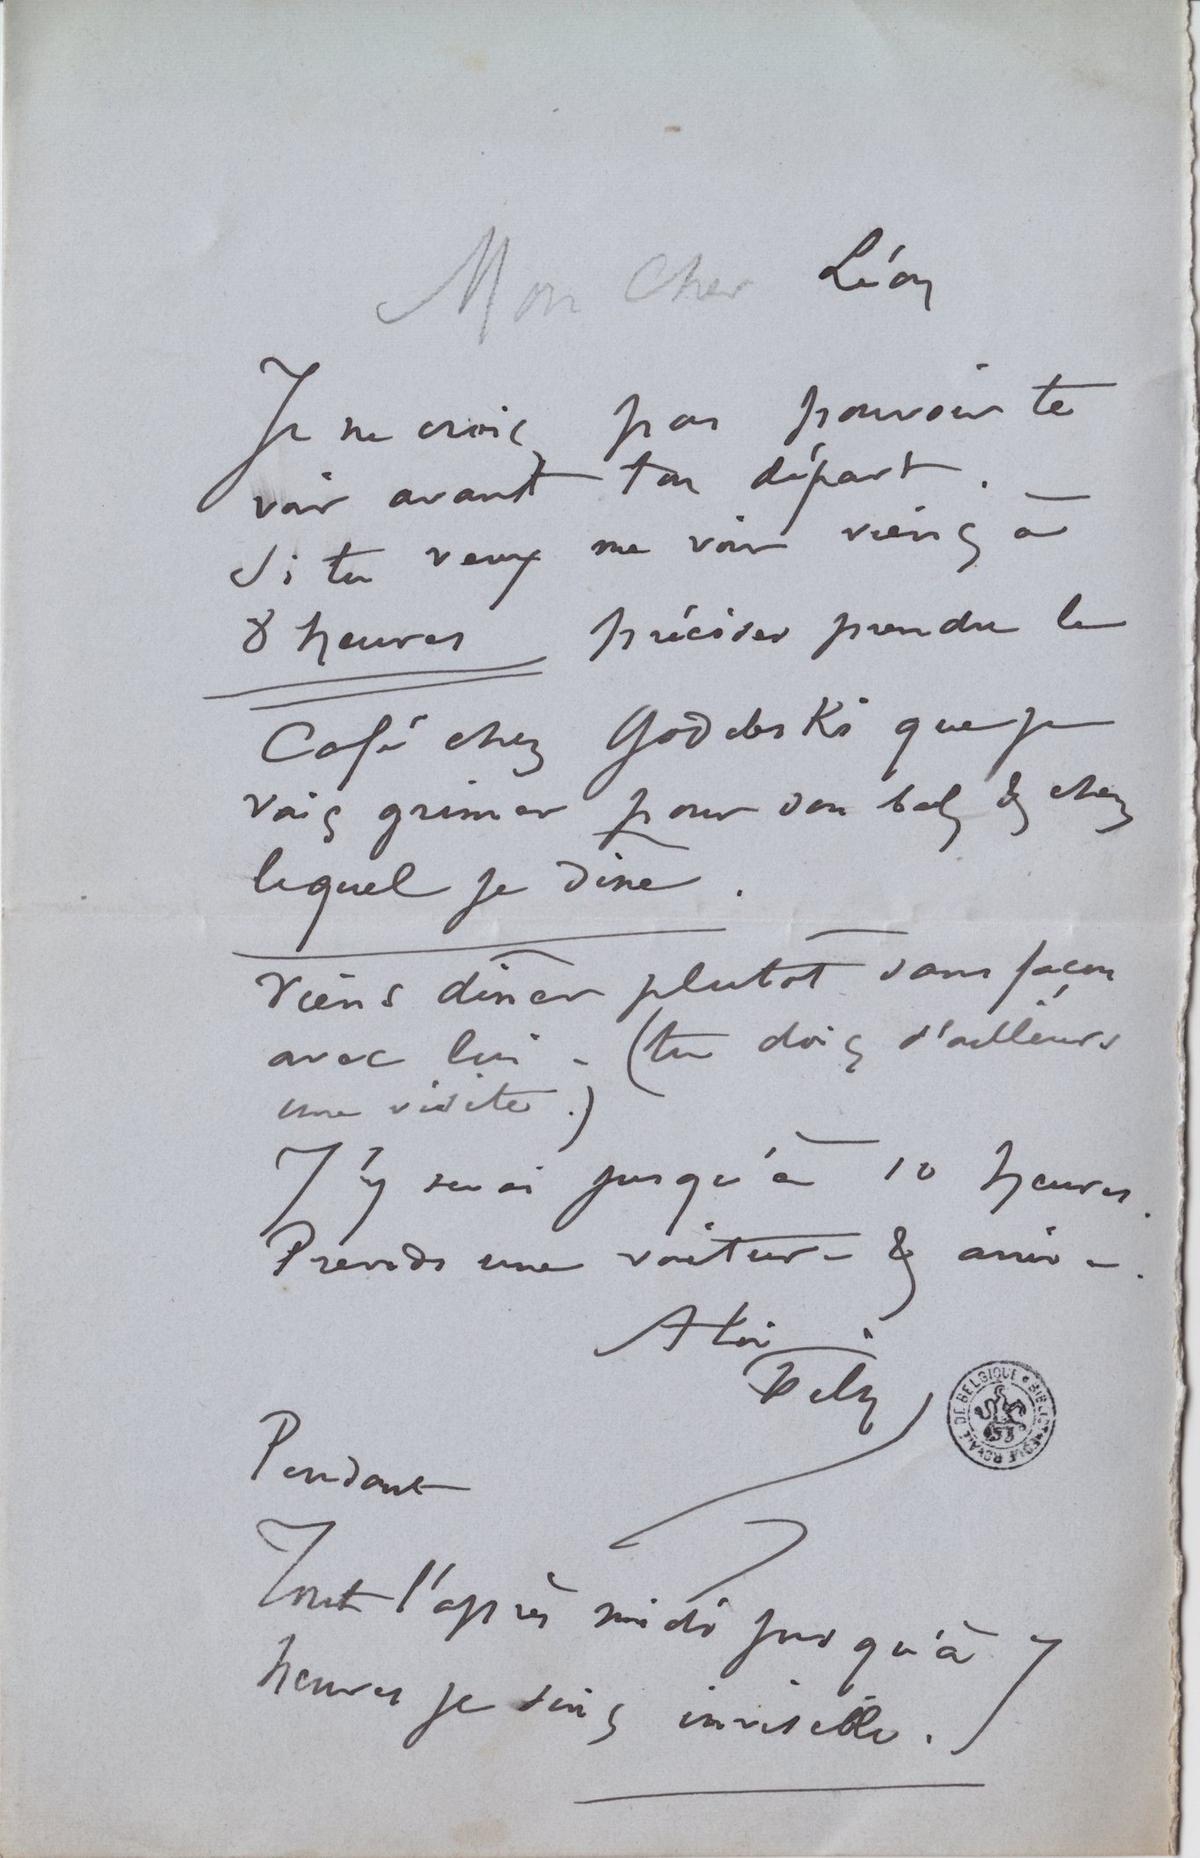 Mon Cher Léon
Je ne crois pas pouvoir te
voir avant ton départ.
Si tu veux me voir viens à
8 heures précises prendre le
Café chez Godebski que je
vais grimer pour son bal & chez
lequel je dine.
Viens dîner plutôt sans façon
avec lui - (tu dois d'ailleurs
une visite.)
J'y serai jusqu'à 10 heures.
Prends une voiture & arrive.
A toi
Fély
BIBLIOTHÈQUE ROYALE DE BELGIQUE
Pendant
Tout l'après midi jusqu'à 7
heures je suis invisible.